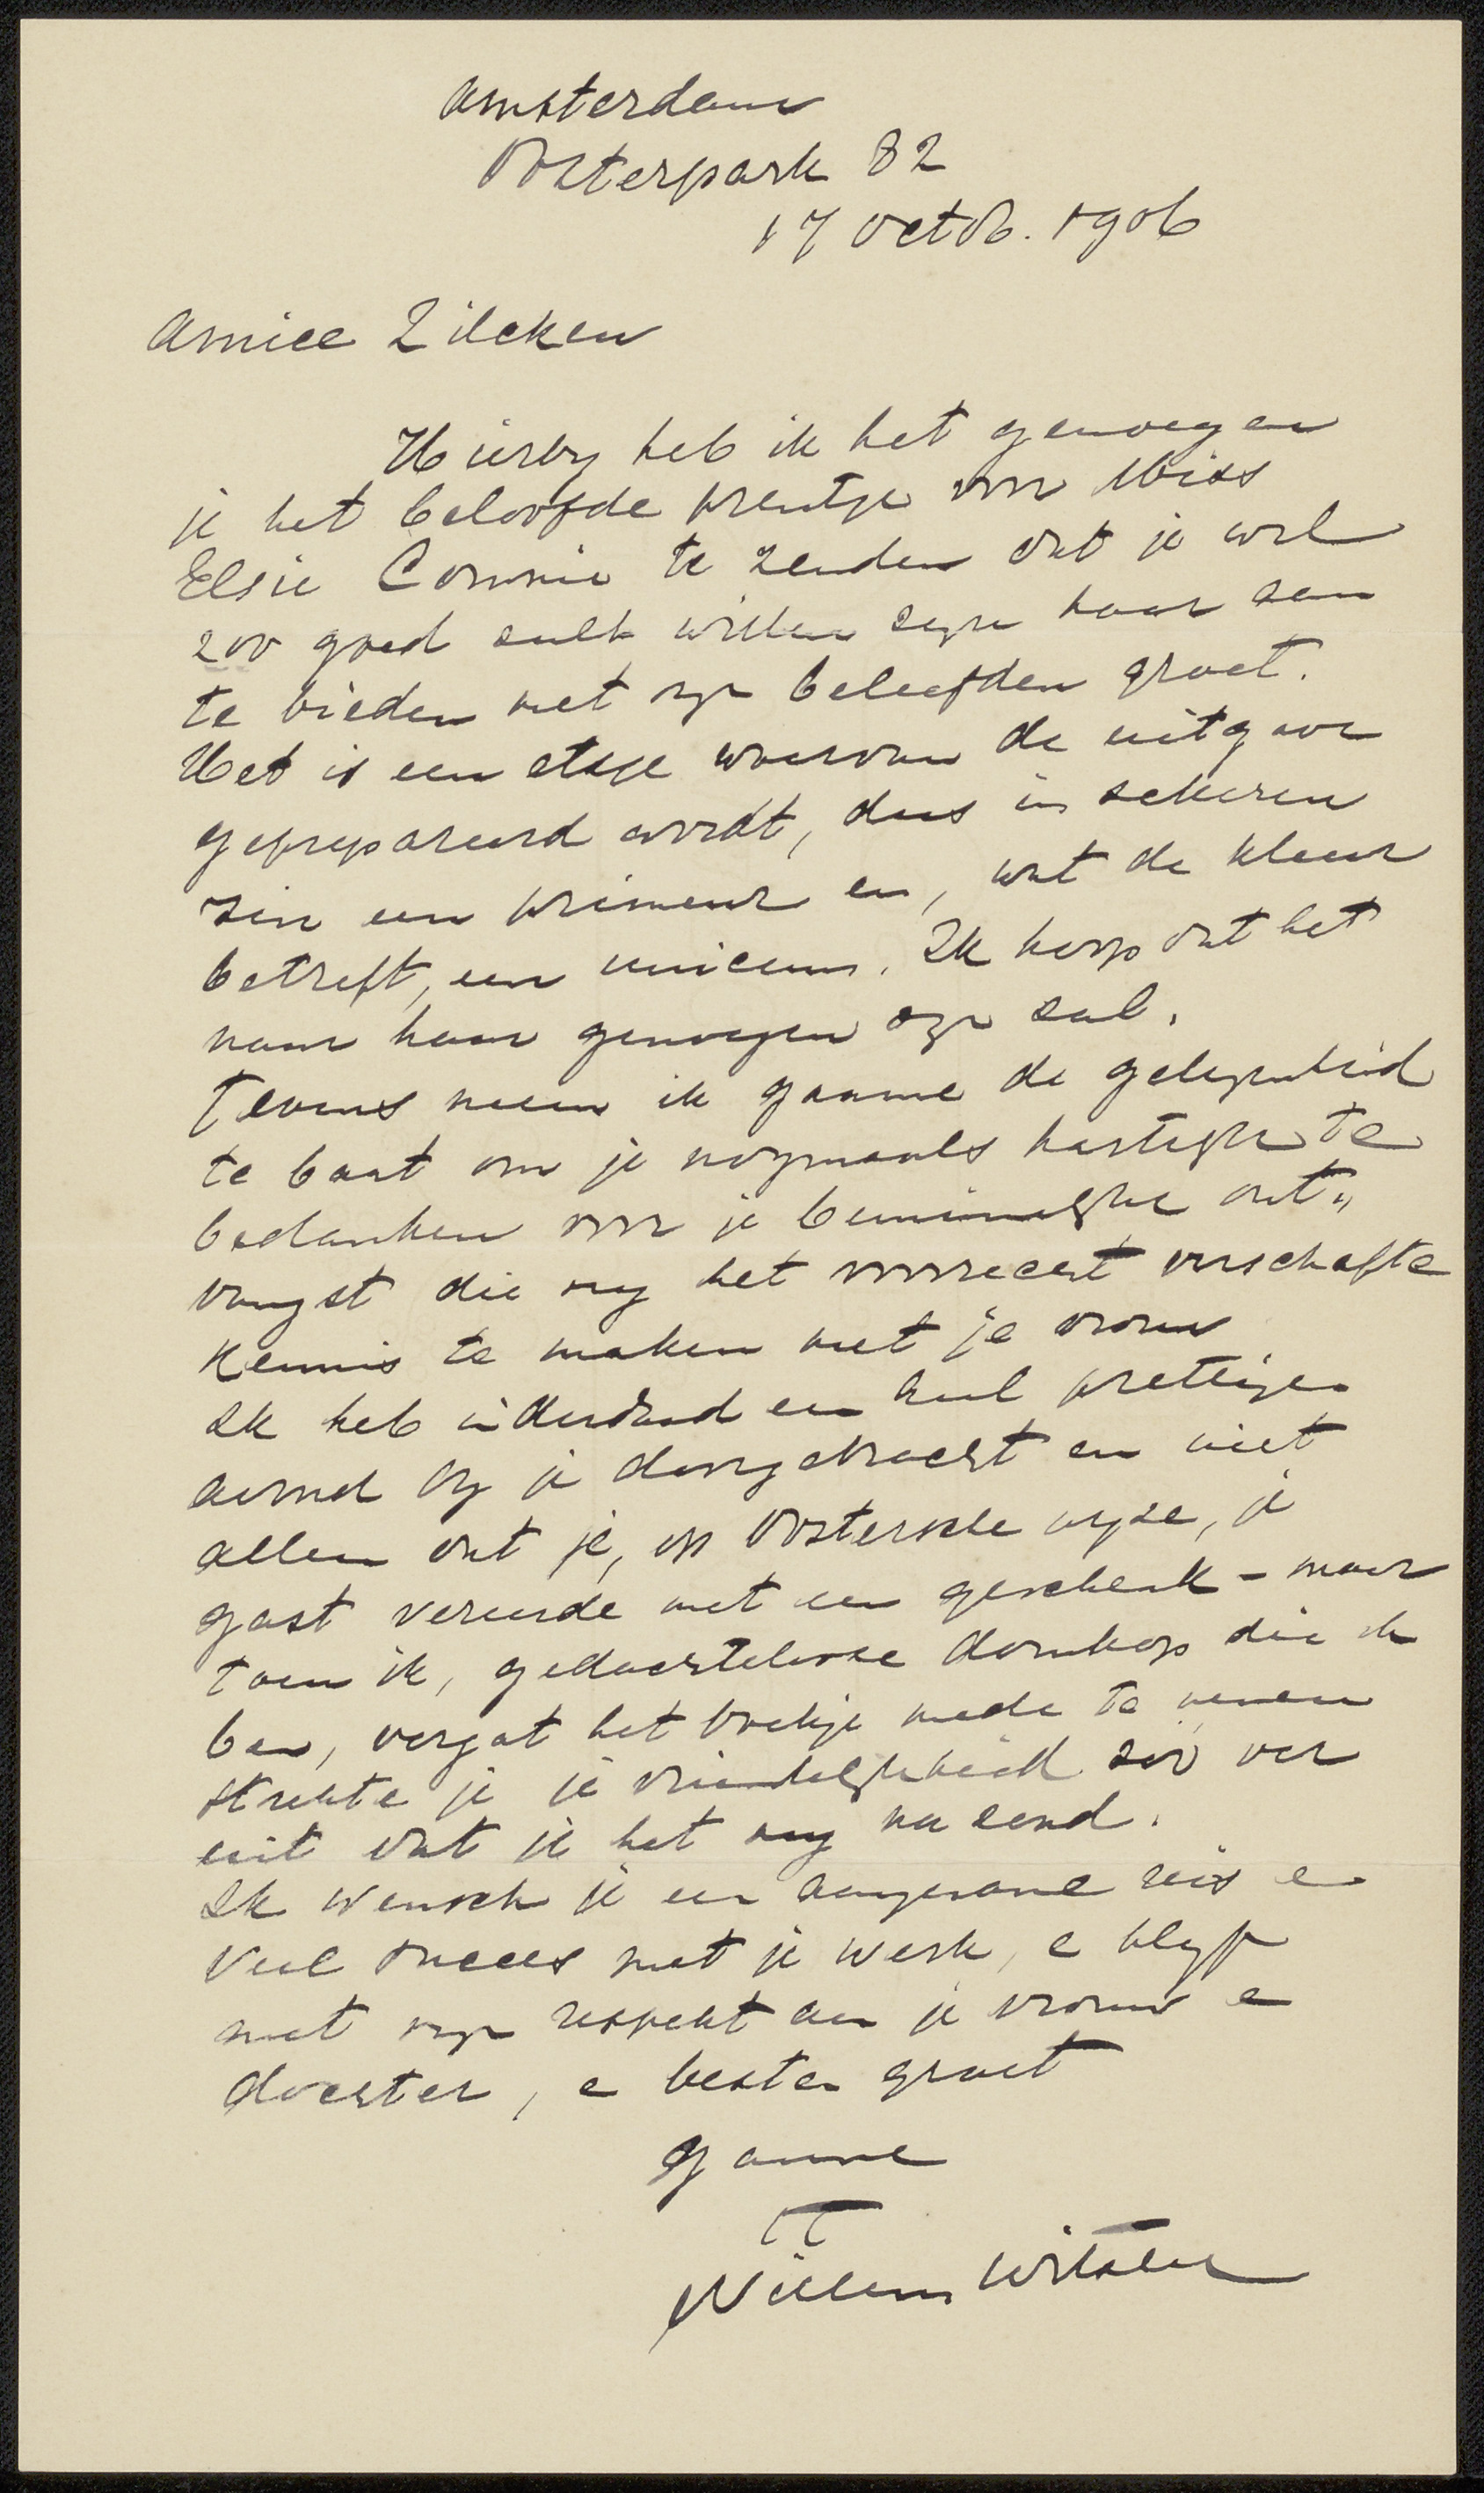 Amsterdam
Oosterpark 82
17 Octob. 1906
Amice Zilcken
Hierby heb ik het genoegen
je het beloofde prentje voor Miss
Elsie te zenden dat je wel
zoo goed zult willen zyn haar aan
te bieden met myn beleefden groet.
Het is een etsje waarvan de uitgave
geprepareerd wordt, dus in zekeren
zin een primeur en, wat de kleur
betreft, een unicum. Ik hoop dat het
naar haar genoegen zyn zal.
Tevens neem ik gaarne de gelegenheid
te baat om je nogmaals hartelyk te
bedanken voor je beminnelyke ont„
vangst die my het voorrecht verschafte
kennis te maken met je vrouw
Ik heb inderdaad een heel prettigen
avond by je doorgebracht en niet
alleen dat je, op Oostersche wyze, je
gast vereerde met een geschenk – maar
toen ik, gedachtelooze domkop die ik
ben, vergat het boekje mede te nemen
strekte je je vriendelykheid zóó ver
uit dat je het my na zond.
Ik wensch je een aangename reis en
veel succes met je werk, en blyf
met myn respekt aan je vrouw en
dochter, en besten groet
gaarne
TT
Willem Witsen